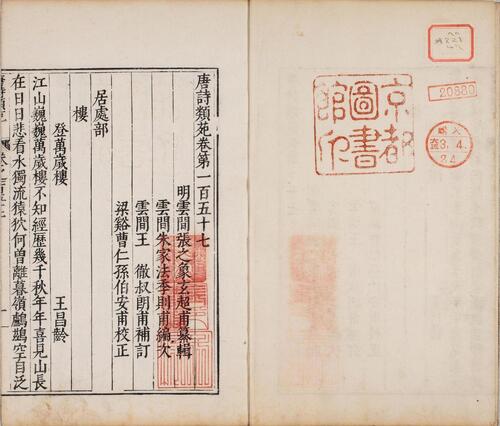 20880
京都
圖書
館印
唐詩類苑卷第一百五十七
明雲間張之象玄超甫纂輯
雲間朱家法季則甫編次
雲間王　徹叔朗甫補訂
梁谿曹仁孫伯安甫校正
居處部
樓
登萬歲樓　王昌齡
江山巍巍萬歲樓不知經歷幾千秋年年喜見山長
在日日悲看水獨流猿狖何曾離暮嶺鸕鷀空自泛